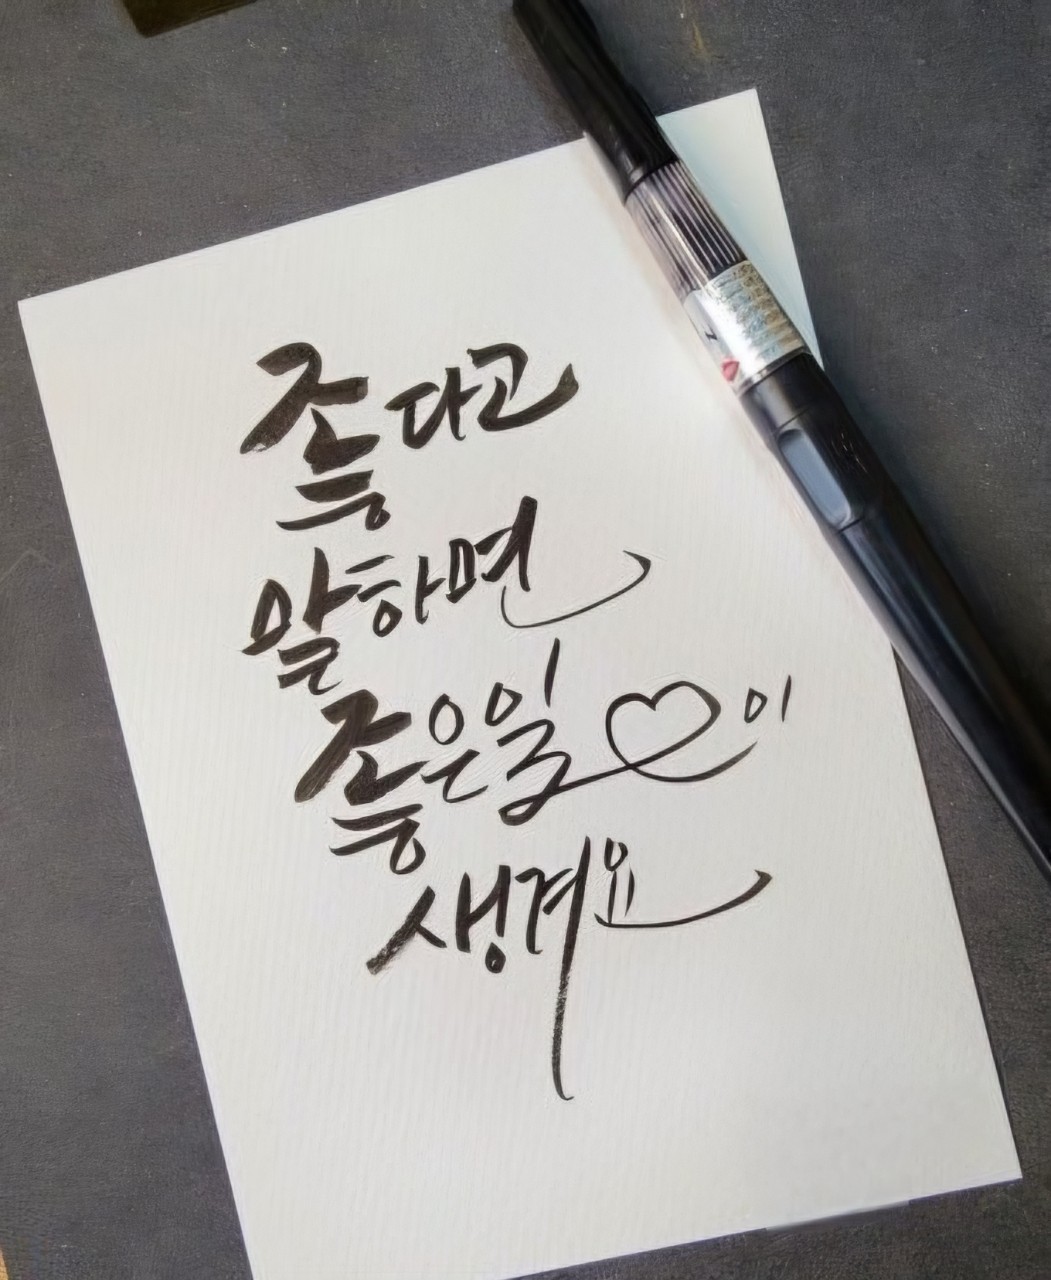 좋다고
말하면
좋은일♡이
생겨요